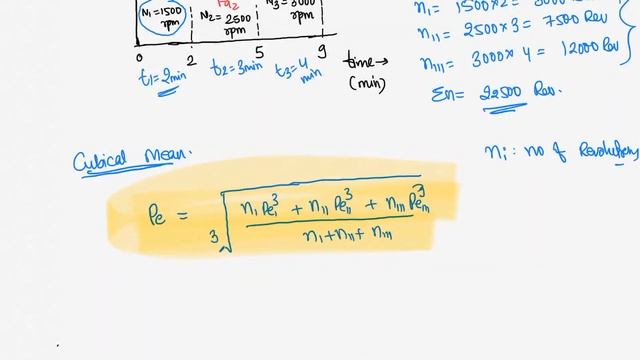 N₁=1500 rpm
Fa₂
N₂=2500 rpm
N₃=3000 rpm
0 2 5 9 time→ (min)
t₁=2min t₂=3min t₃=4 min
n₁= 1500×2=
n₁₁= 2500×3= 7500 Rev
n₁₁₁= 3000× 4= 12000 Rev
Σn= 22500 Rev.
Cubical Mean.
ni: no of Revolutions
Pe = ∛((n₁ Pe₁³ + n₁₁ Pe₁₁³ + n₁₁₁ Pe₁₁₁³) / (n₁+n₁₁+ n₁₁₁))